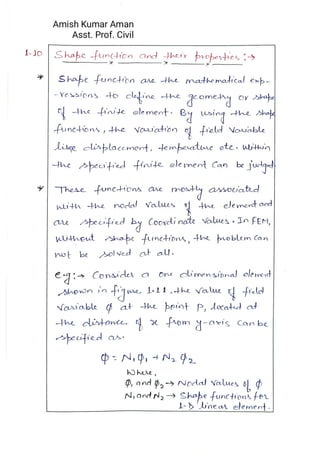 Amish Kumar Aman
Asst. Prof. Civil
1.10 Shape function and their properties :→
* Shape function are the mathematical exp-
-ressions to define the geometry or shape
of the finite element. By using the shape
functions, the variation of field variable
like displacement, temperature etc. within
the specified finite element can be judged.
* These functions are mostly associated
with the nodal values of the element and
are specified by coordinate values. In FEM,
without shape functions, the problem can
not be solved at all.
e.g:→ Consider a one dimensional element
shown in figure 1.11. the value of field
variable φ at the point P, located at
the distance of x from y-axis can be
specified as:
φ = N₁φ₁ + N₂ φ₂
where,
φ₁ and φ₂ → Nodal values of φ
N₁ and N₂ → Shape functions for
1-D linear element.